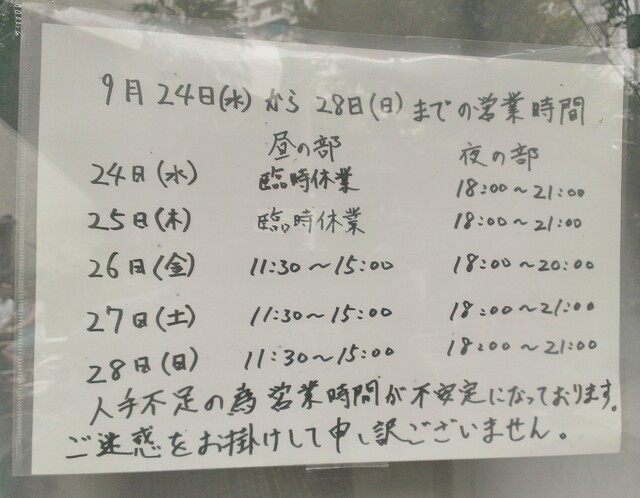 9月24日(水)から28日(日)までの営業時間
昼の部 夜の部
24日(水) 臨時休業 18:00〜21:00
25日(木) 臨時休業 18:00〜21:00
26日(金) 11:30〜15:00 18:00〜20:00
27日(土) 11:30〜15:00 18:00〜21:00
28日(日) 11:30〜15:00 18:00〜21:00
人手不足の為営業時間が不安定になっております。
ご迷惑をお掛けして申し訳ございません。